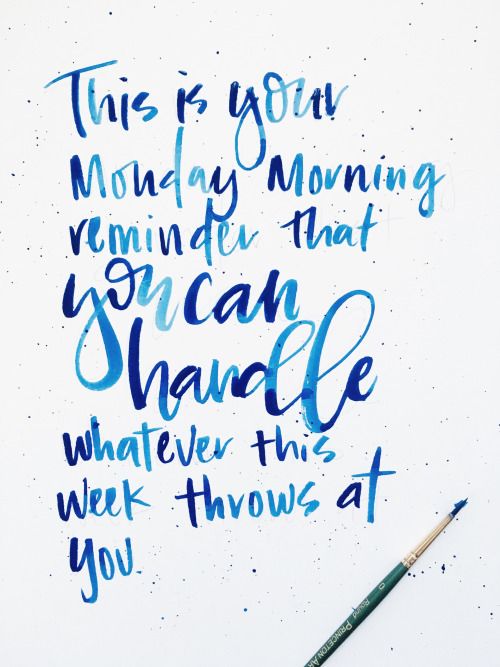 This is your
Monday Morning
reminder that
you can
handle
whatever this
week throws at
you.
0
Round
PRINCETON